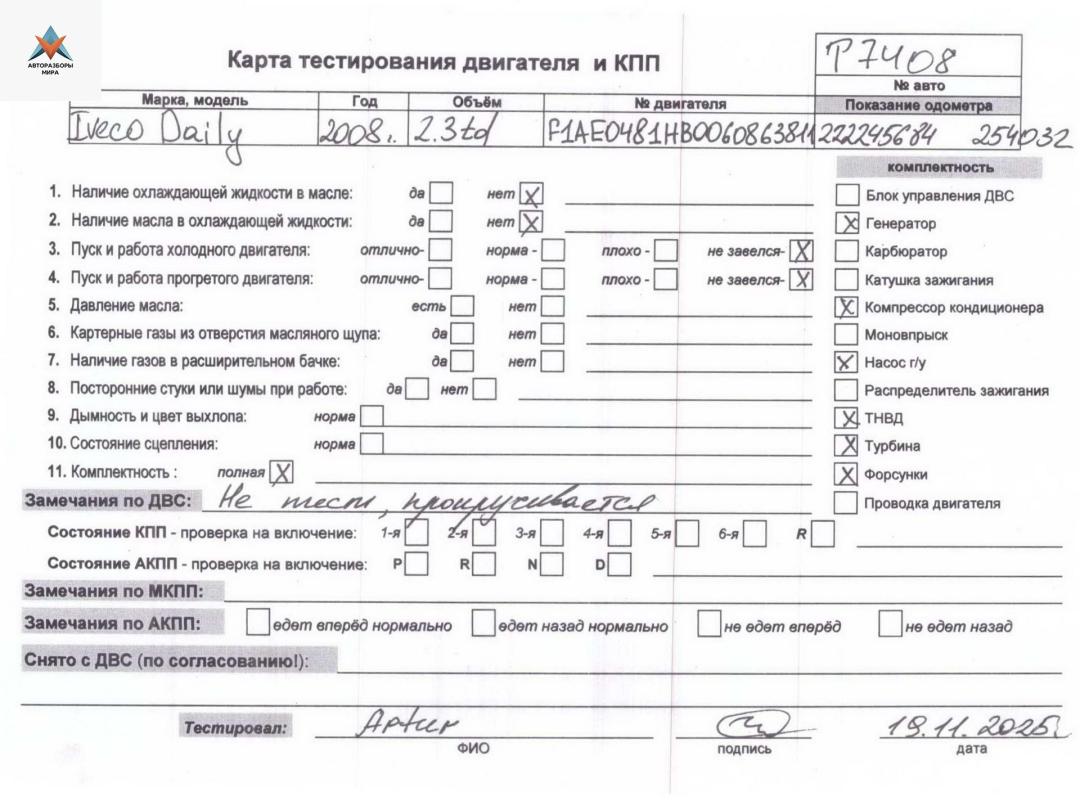 АВТОРАЗБОРЫ
МИРА
Карта тестирования двигателя и КПП
P7408
№ авто
Марка, модель Год Объём № двигателя Показание одометра
Iveco Daily 2008г. 2.3td F1AE0481HB0060863811222245684 254032
комплектность
1. Наличие охлаждающей жидкости в масле: да нет X
2. Наличие масла в охлаждающей жидкости: да нет X
3. Пуск и работа холодного двигателя: отлично- норма - плохо - не завелся- X
4. Пуск и работа прогретого двигателя: отлично- норма - плохо - не завелся- X
5. Давление масла: есть нет
6. Картерные газы из отверстия масляного щупа: да нет
7. Наличие газов в расширительном бачке: да нет
8. Посторонние стуки или шумы при работе: да нет
9. Дымность и цвет выхлопа: норма
10. Состояние сцепления: норма
11. Комплектность : полная X
Блок управления ДВС
X Генератор
Карбюратор
Катушка зажигания
X Компрессор кондиционера
Моновпрыск
X Насос г/у
Распределитель зажигания
X ТНВД
X Турбина
X Форсунки
Проводка двигателя
Замечания по ДВС: Не тест, прокручивается
Состояние КПП - проверка на включение: 1-я 2-я 3-я 4-я 5-я 6-я R
Состояние АКПП - проверка на включение: P R N D
Замечания по МКПП:
Замечания по АКПП: едет вперёд нормально едет назад нормально не едет вперёд не едет назад
Снято с ДВС (по согласованию!):
Тестировал: Artur 19.11.2025
ФИО подпись дата